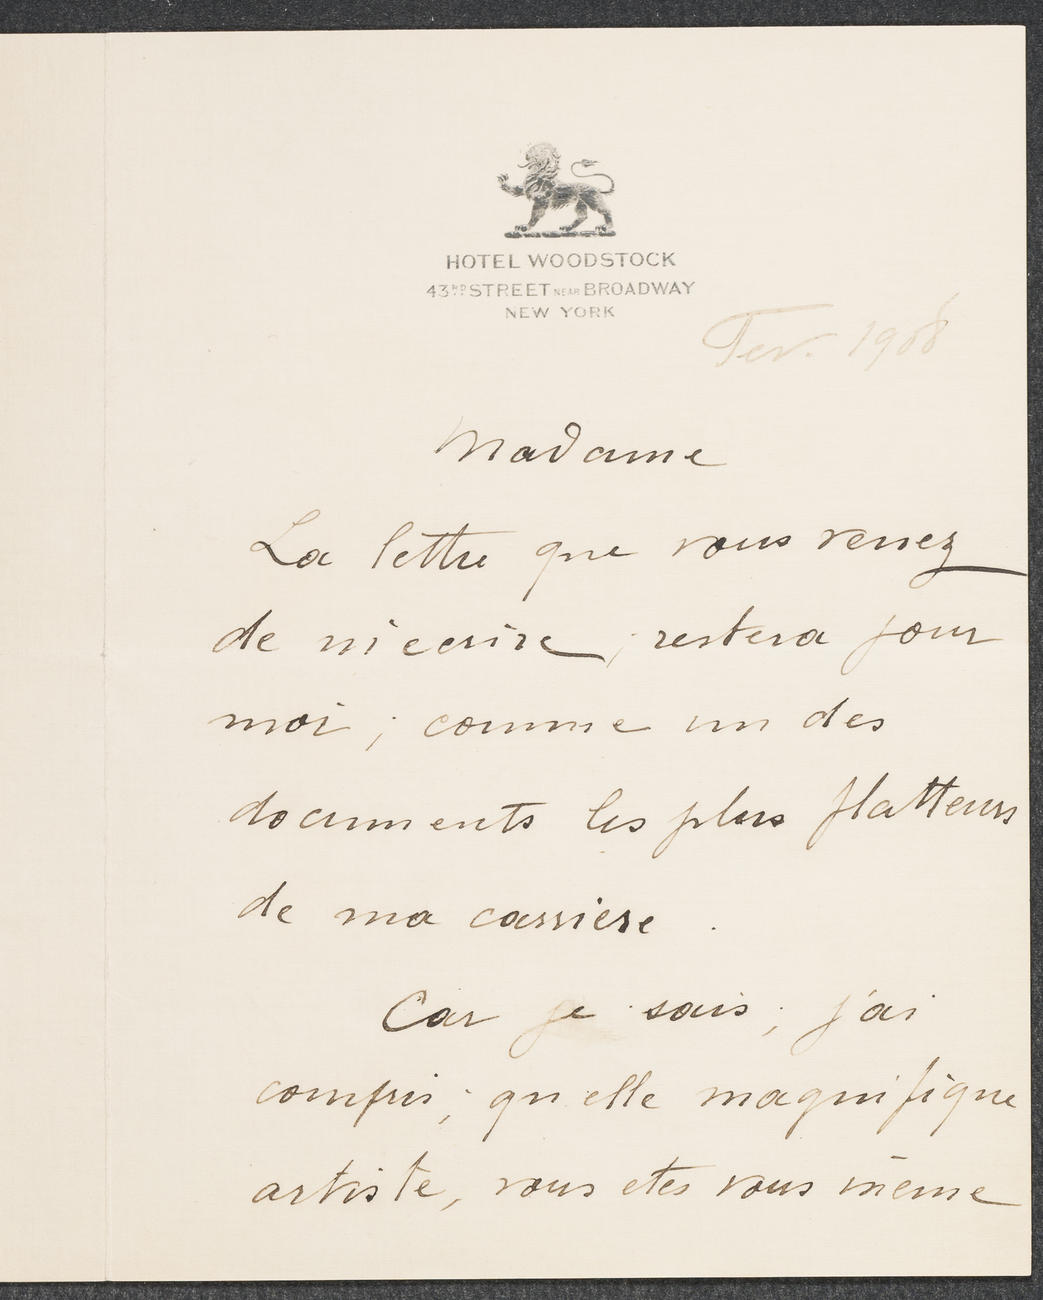 HOTEL WOODSTOCK
43RD STREET NEAR BROADWAY
NEW YORK
Fev. 1908
Madame
La lettre que vous venez
de m'ecrire ; restera pour
moi ; comme un des
documents les plus flatteurs
de ma carriere .
Car je sais ; j'ai
compris ; qu'elle magnifique
artiste, vous etes vous même